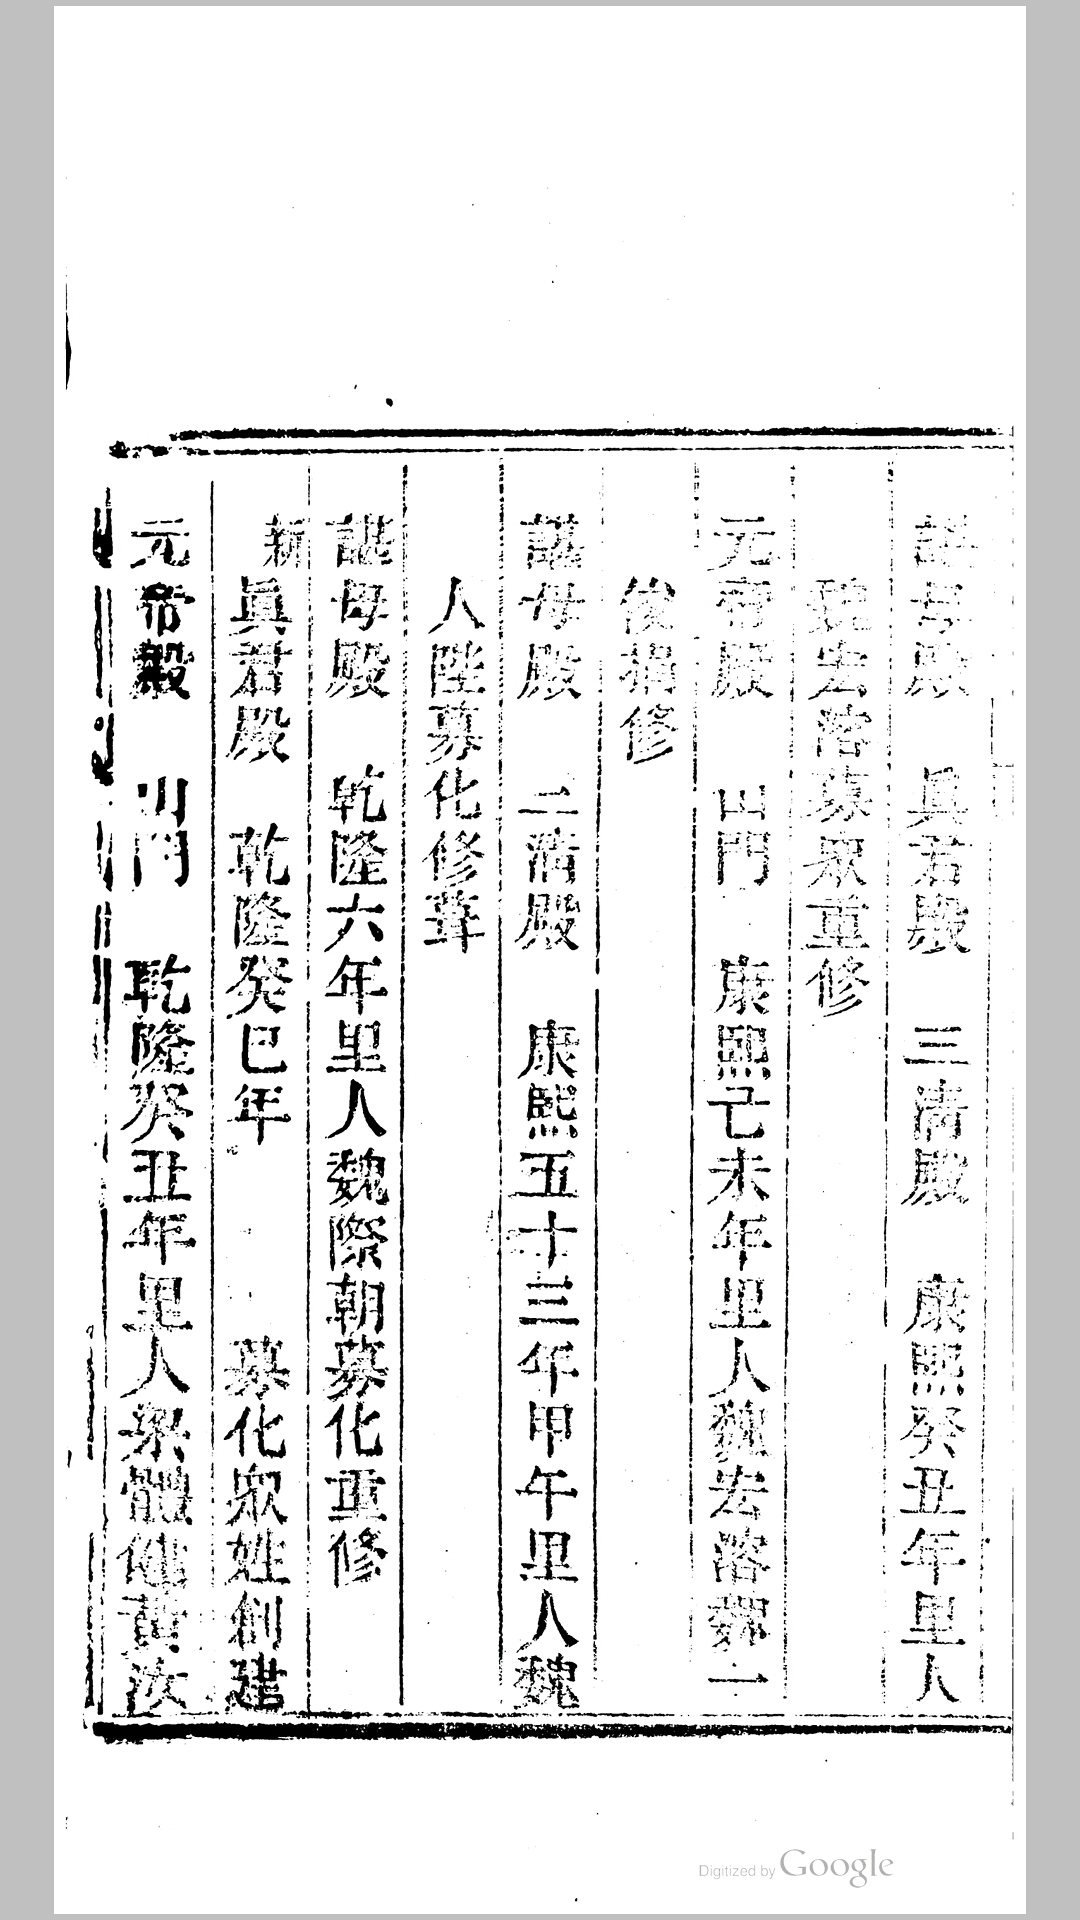 諶母殿　真君殿　三清殿　康熙癸丑年里人
魏去溶募眾重修
元帝殿　山門　康熙己未年里人魏去溶魏一
俊捐修
諶母殿　三清殿　康熙五十三年甲午里人魏
人陞募化修葺
諶母殿　乾隆六年里人魏際朝募化重修
新真君殿　乾隆癸巳年　募化眾姓創建
元帝殿　山門　乾隆癸丑年里人梁體健黃汝
Digitized by Google